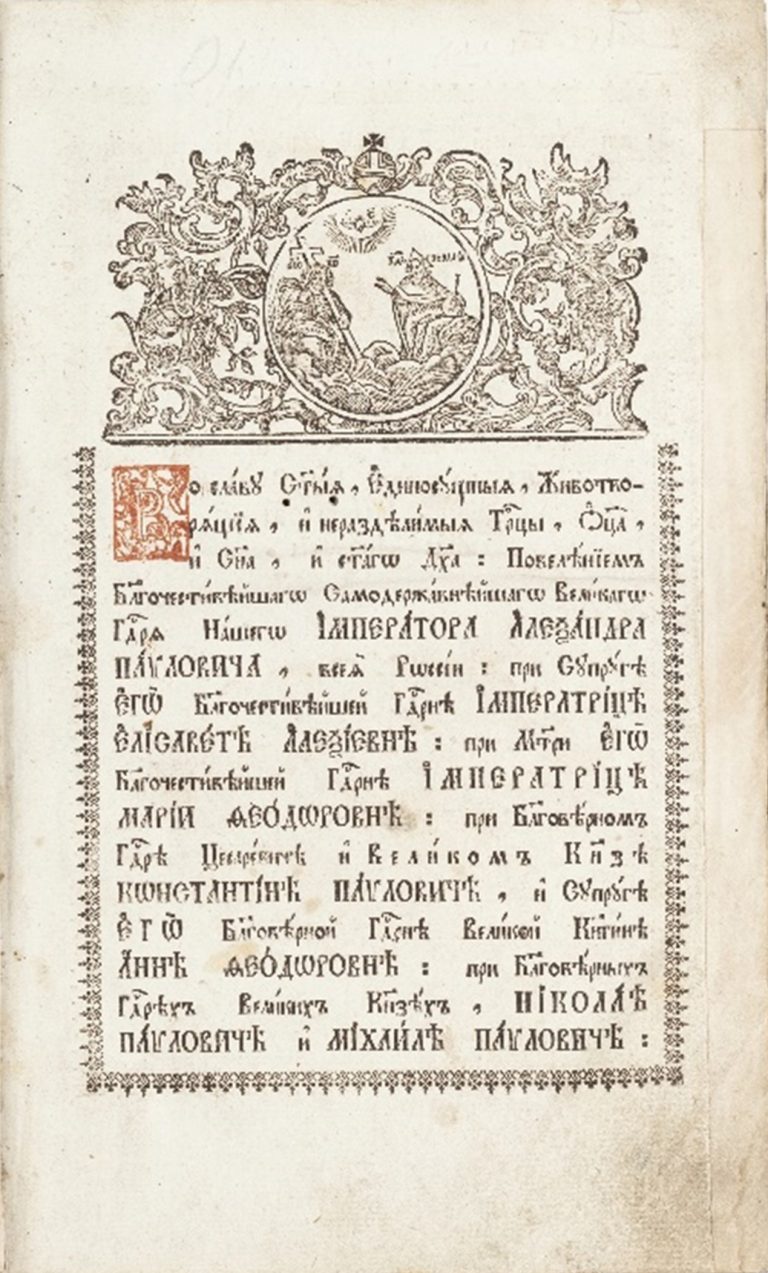 Во сла́вꙋ Ст҃ы́ѧ, Є҆диносꙋ́щныѧ, Животво-
рѧ́щїѧ, и҆ нераздѣли́мыѧ Трⷪ҇цы, Ѻ҆ц҃а̀,
и҆ Сн҃а, и҆ ст҃а́гѡ Дх҃а: Повелѣ́нїемъ
Бл҃гочести́вѣйшагѡ Самодержа́внѣйшагѡ Вели́кагѡ
Гдⷭ҇рѧ На́шегѡ І҆МПЕРА́ТОРА А҆ЛЕѮА́НДРА
ПА́ѴЛОВИЧА, всеѧ̀ Рѡссі́и: при Сꙋпрꙋ́гѣ
Є҆ГѠ̀ Бл҃гочести́вѣйшей Гдⷭ҇рнѣ І҆МПЕРАТРІ́ЦѢ
Є҆ЛІСАВЕ́ТѢ А҆ЛЕѮІ́ЕВНѢ: при М҃три Є҆ГѠ̀
Бл҃гочести́вѣйшей Гдⷭ҇рнѣ І҆МПЕРАТРІ́ЦѢ
МАРІ́И ѲЕО́ДѠРОВНѢ: при Бл҃говѣ́рномъ
Гдⷭ҇рѣ Цесаре́вичѣ и҆ Вели́комъ Кн҃зѣ
КѠНСТАНТІ́НѢ ПА́ѴЛОВИЧѢ, и҆ Сꙋпрꙋ́гѣ
Є҆ГѠ̀ Бл҃говѣ́рной Гдⷭ҇рнѣ Вели́кой Кн҃ги́нѣ
А҆́ННѢ ѲЕО́ДѠРОВНѢ: при Бл҃говѣ́рныхъ
Гдⷭ҇рѣхъ Вели́кихъ Кн҃зѣ́хъ, НІКОЛА́Ѣ
ПА́ѴЛОВИЧѢ и҆ МІХАИ́ЛѢ ПА́ѴЛОВИЧѢ: